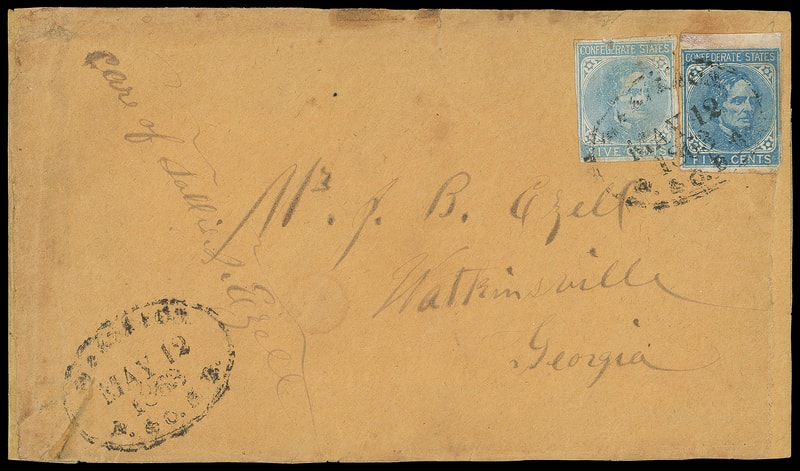 Care of Sallie S. Ezell
CONFEDERATE STATES
FIVE CENTS
CONFEDERATE STATES
FIVE CENTS
MAY 12
Mr. J. B. Ezell
Watkinsville
Georgia
MAY 12
1863